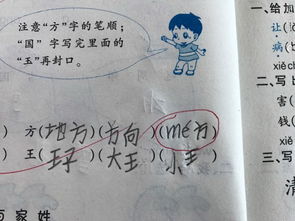 注意“方”字的笔顺;
“国”字写完里面的
“玉”再封口。
) 方(地方)(方向)(mé方)
) 王(王子)(大王)(小王)
百家姓
一、给加
让(
病(
xiě
二、写
害(
钱(
xiě ch
三、写
清